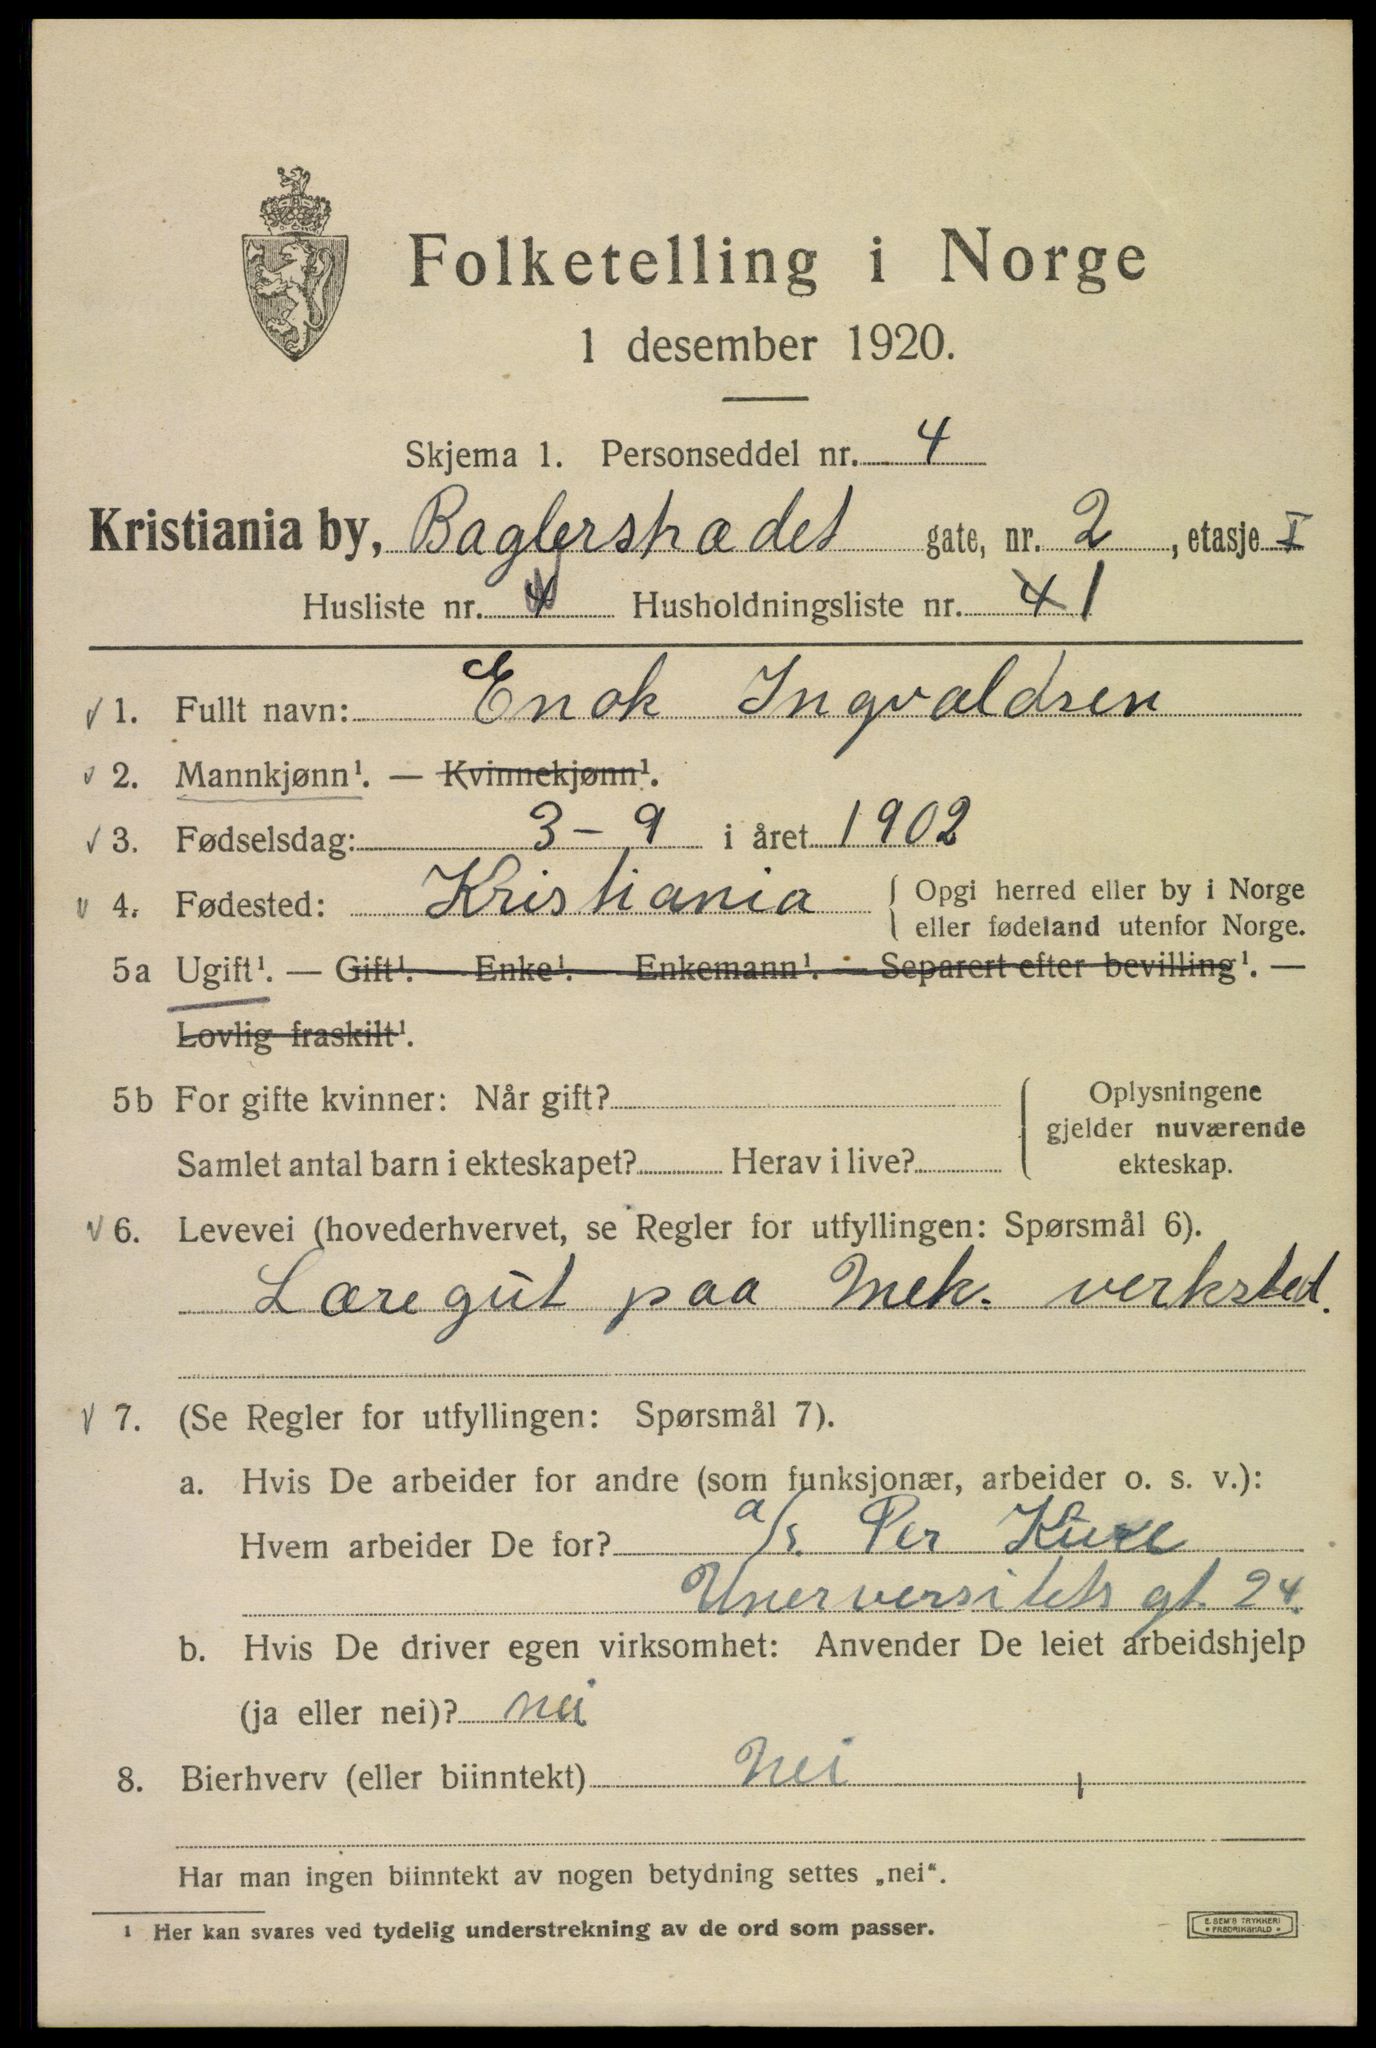 Folketelling i Norge
1 desember 1920.
Skjema 1. Personseddel nr. 4
Kristiania by, Baglerstrædet gate, nr. 2, etasje I
Husliste nr. 4 Husholdningsliste nr. 4 1
1. Fullt navn: Enok Ingvaldsen
2. Mannkjønn¹. — Kvinnekjønn¹.
3. Fødselsdag: 3 – 9 i året 1902
4. Fødested: Kristiania { Opgi herred eller by i Norge
eller fødeland utenfor Norge.
5a Ugift¹. — Gift¹. — Enke¹. — Enkemann¹. — Separert efter bevilling¹. —
Lovlig fraskilt¹.
5b For gifte kvinner: Når gift? Oplysningene
gjelder nuværende
Samlet antal barn i ekteskapet? Herav i live? ekteskap.
6. Levevei (hovederhvervet, se Regler for utfyllingen: Spørsmål 6).
Læregut paa Mek. verksted.
7. (Se Regler for utfyllingen: Spørsmål 7).
a. Hvis De arbeider for andre (som funksjonær, arbeider o. s. v.):
Hvem arbeider De for? a/s. Per Kure
Unerversitets gt. 24.
b. Hvis De driver egen virksomhet: Anvender De leiet arbeidshjelp
(ja eller nei)? nei
8. Bierhverv (eller biinntekt) Nei
Har man ingen biinntekt av nogen betydning settes „nei“.
¹ Her kan svares ved tydelig understrekning av de ord som passer.
E. SEM'S TRYKKERI
FREDRIKSHALD